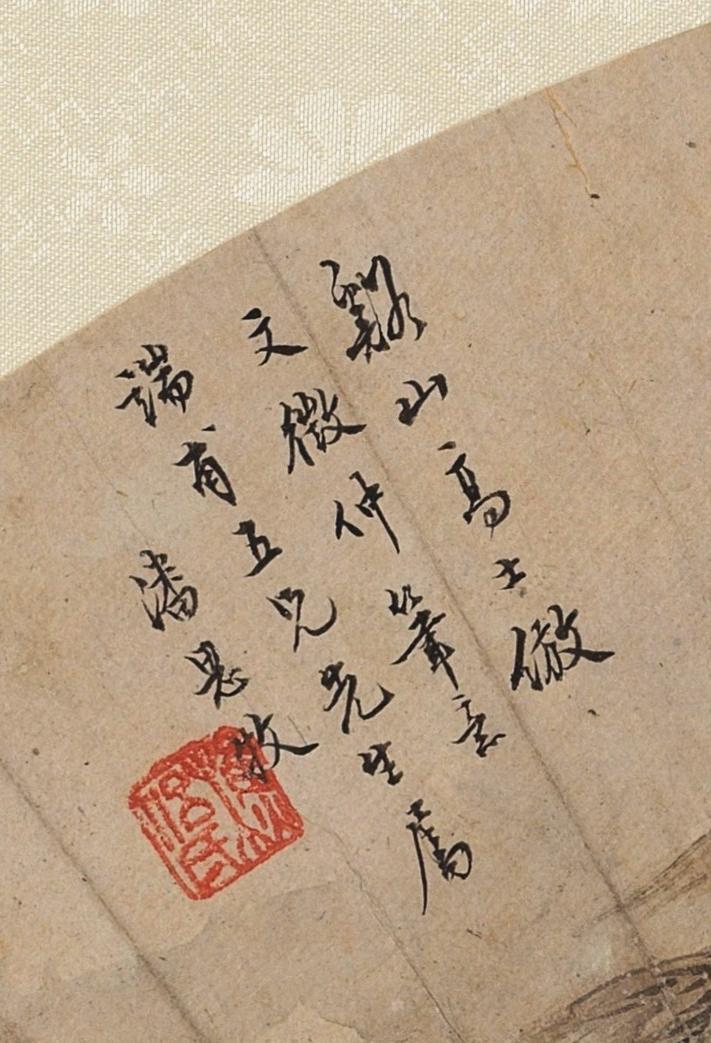 谿山高士倣
文徵仲筆意
端甫五兄先生屬
潘思牧